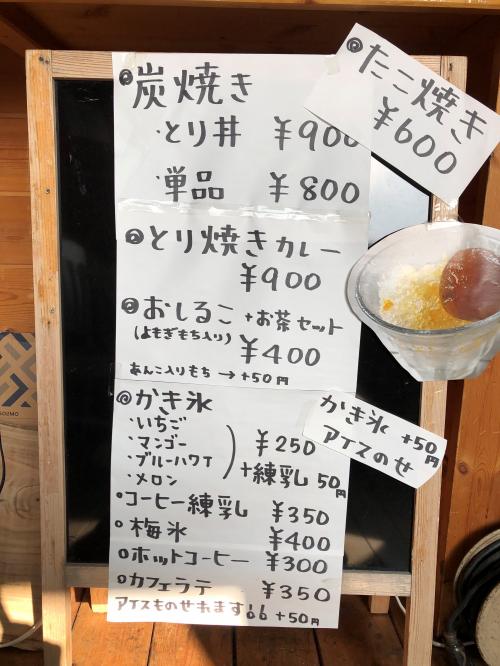 たこ焼き
¥600
炭焼き
・とり丼 ¥900
・単品 ¥800
とり焼きカレー
¥900
おしるこ+お茶セット
(よもぎもち入り) ¥400
あんこ入りもち→+50円
かき氷
・いちご
・マンゴー
・ブルーハワイ
・メロン
¥250
+練乳50円
かき氷 +50円
アイスのせ
コーヒー練乳 ¥350
梅氷 ¥400
ホットコーヒー ¥300
カフェラテ ¥350
アイスものせれます +50円